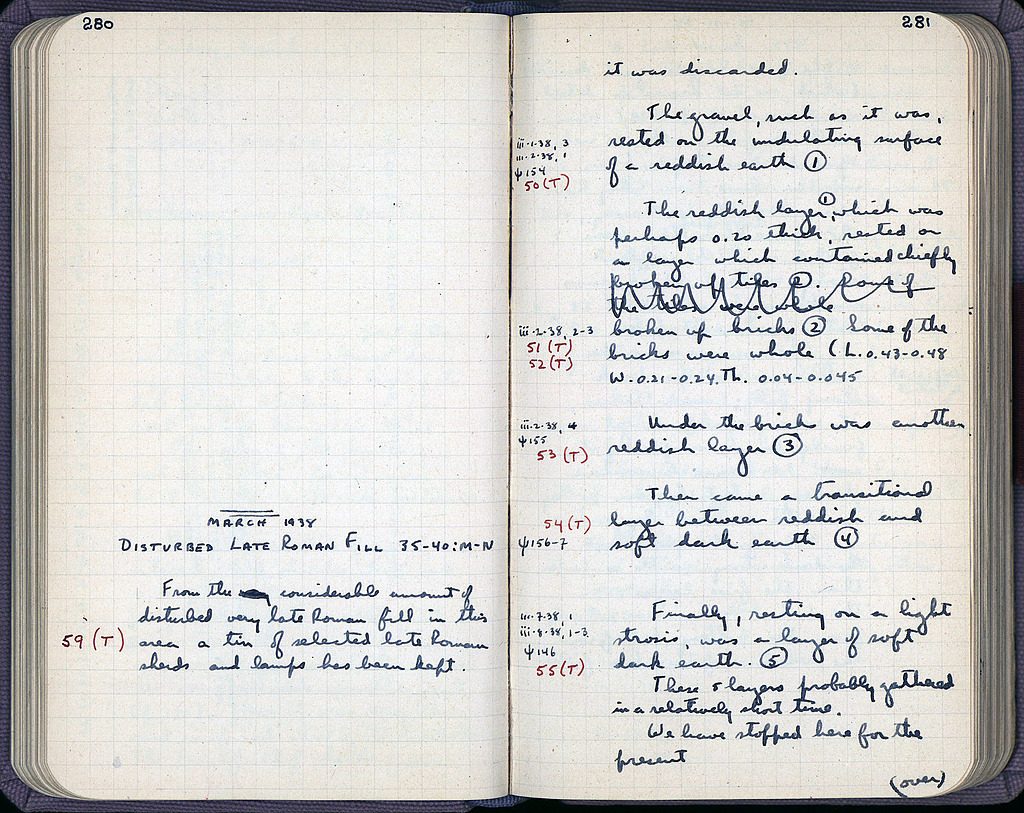 280
MARCH 1938
DISTURBED LATE ROMAN FILL 35-40:M-N
From the considerable amount of
disturbed very late Roman fill in this
59 (T) area a tin of selected late Roman
sherds and lamps has been kept.
281
it was discarded.
The gravel, such as it was,
iii-1-38, 3 rested on the undulating surface
iii-2-38, 1
ψ154 of a reddish earth ①
50 (T)
The reddish layer ①, which was
perhaps 0.20 thick, rested on
a layer which contained chiefly
broken up tiles ②. Some of
the tiles were whole
iii-2-38, 2-3 broken up bricks ② Some of the
51 (T) bricks were whole (L. 0.43-0.48
52 (T)
W. 0.21-0.24. Th. 0.04-0.045
iii-2-38, 4 Under the bricks was another
ψ155 reddish layer ③
53 (T)
Then came a transitional
54 (T) layer between reddish and
ψ156-7 soft dark earth ④
iii-7-38, 1 Finally, resting on a light
iii-8-38, 1-3 strosis, was a layer of soft
ψ146 dark earth. ⑤
55 (T)
These 5 layers probably gathered
in a relatively short time.
We have stopped here for the
present
(over)